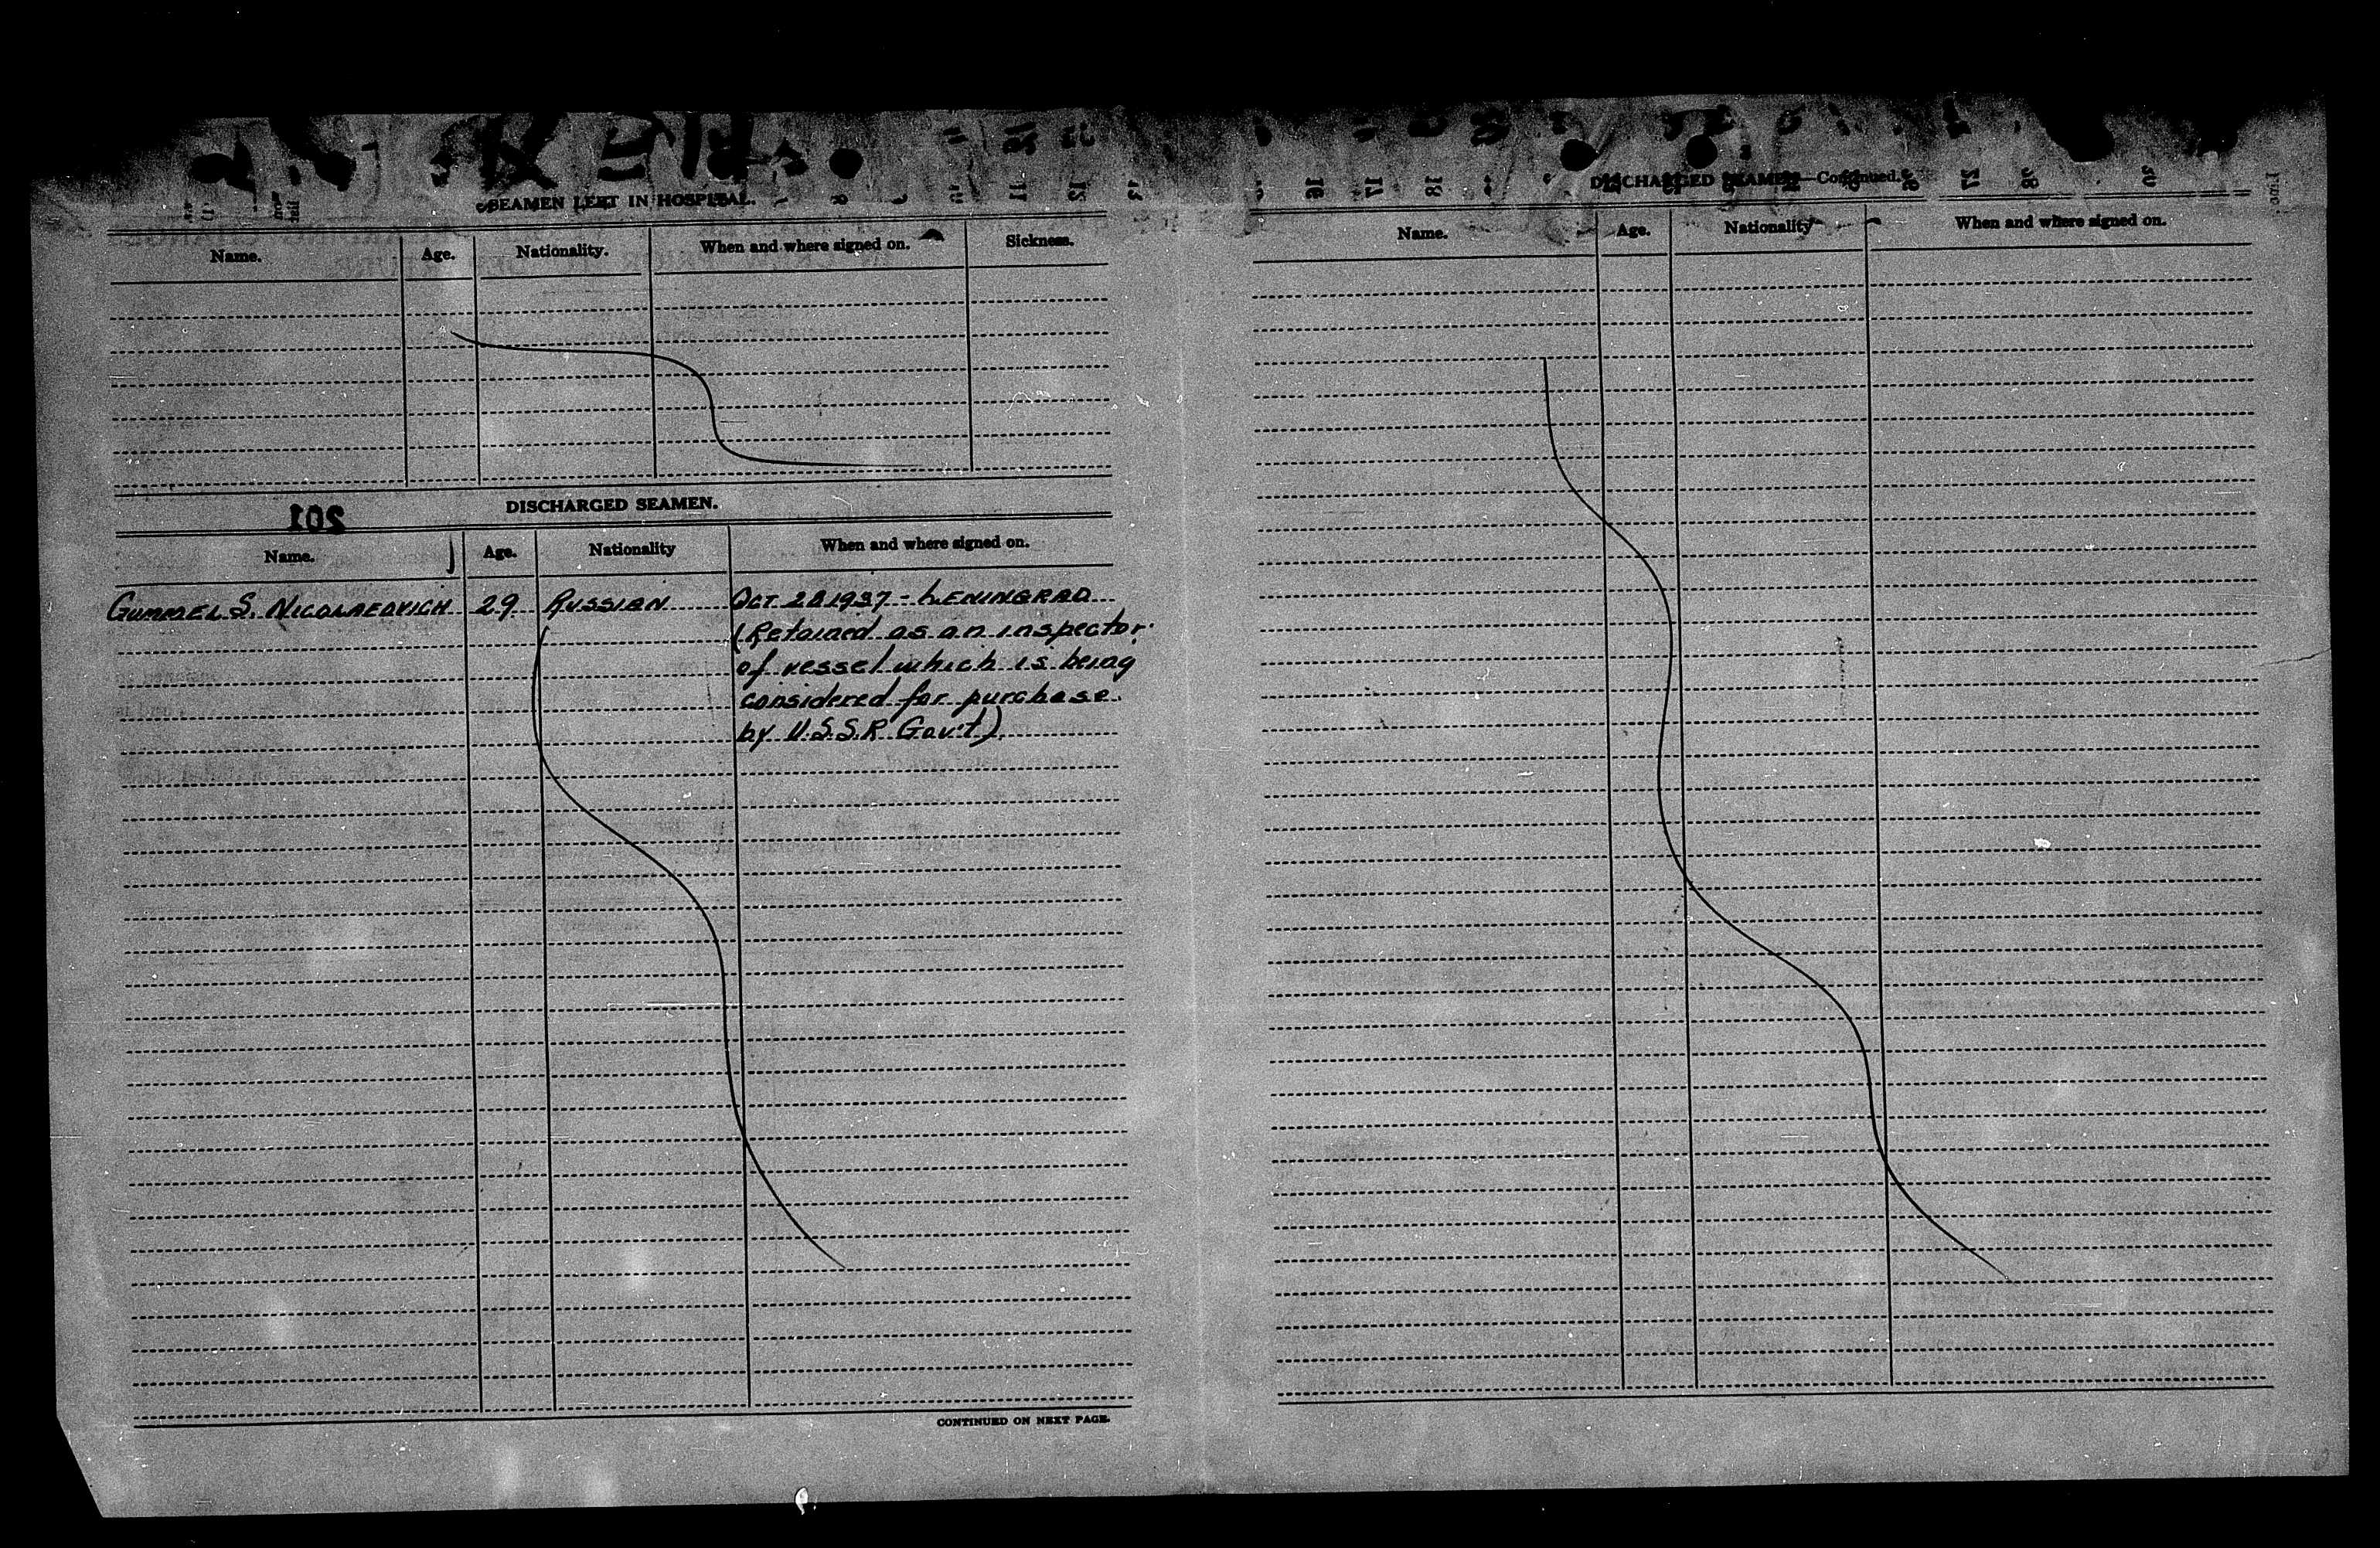 SEAMEN LEFT IN HOSPITAL.
Name. Age. Nationality. When and where signed on. Sickness.
DISCHARGED SEAMEN.
201
Name. Age. Nationality When and where signed on.
S. NICOLAEOVICH 29 RUSSIAN OCT 28 1937 - LENINGRAD
(Retained as an inspector
of vessel which is being
considered for purchase
by U.S.S.R Gov't)
CONTINUED ON NEXT PAGE.
DISCHARGED SEAMEN—Continued.
Name. Age. Nationality When and where signed on.